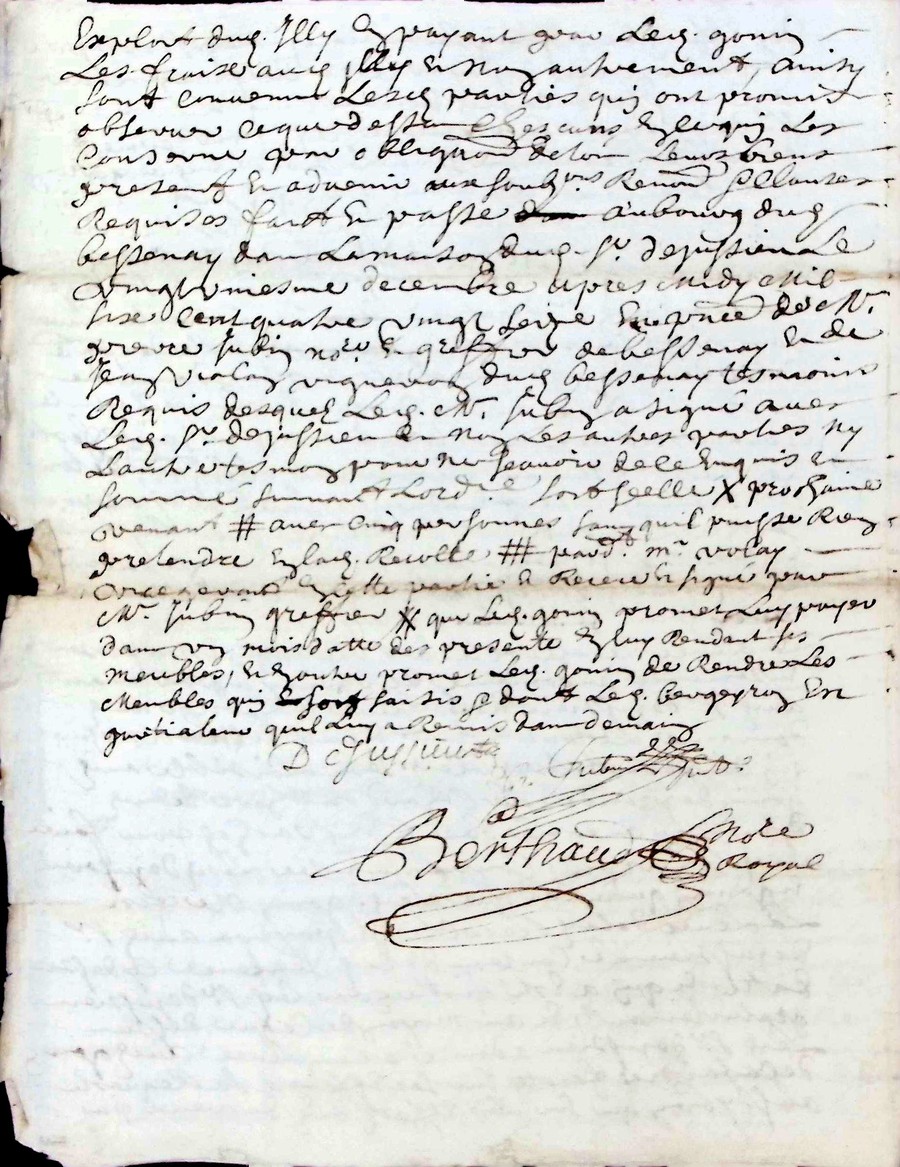 Exploit dud. Illy En payant par Led. gonin
Les fraix aud. Illy Et Non autrement, ainsy
Sont Convenu Lesd. parties quj ont promis
observer ce que dessus Chescung En ce quj Les
Conserne par obligaon de tous Leurs biens
present Et advenir aux soub.ons Renon. Et Clauses
Requises fait Et passé aubourg dud.
bessenay dans La maison dud. Sr. dejussieu Le
Vingt uniesme decembre apres Midy Mil
Six Cent quatre vingt seize En pnce de Mr.
pierre Jubin nore. Et greffier de bessenay Et de
Jean Violay vigneron dud. bessenay tesmoins
Requis desquels Led. Mr. Jubin a signé avec
Led. Sr. dejussieu Et Non Les autres parties ny
L'autre tesmoin pour ne scavoir de ce Enquis Et
sommé suivant L'ord.ce Sort scelle X prochaine
venant # avec Cinq personnes sans quil puisse Rien
pretendre En lad. Recolte ## pard.t mr. volay
En cette partie Et Receu Et signé par
Mr. Jubin greffier X que Led. gonin promet Luy payer
dans un mois datte des presente En luy Rendant ses
meubles, Et En outre promet Led. gonin de Rendre Les
Meubles quj sont saisis Et dont Led. bergeron En
gardiateur quil Luy a Remis dans demain
Dejussieu Jubin
Berthaud Nore
Royal